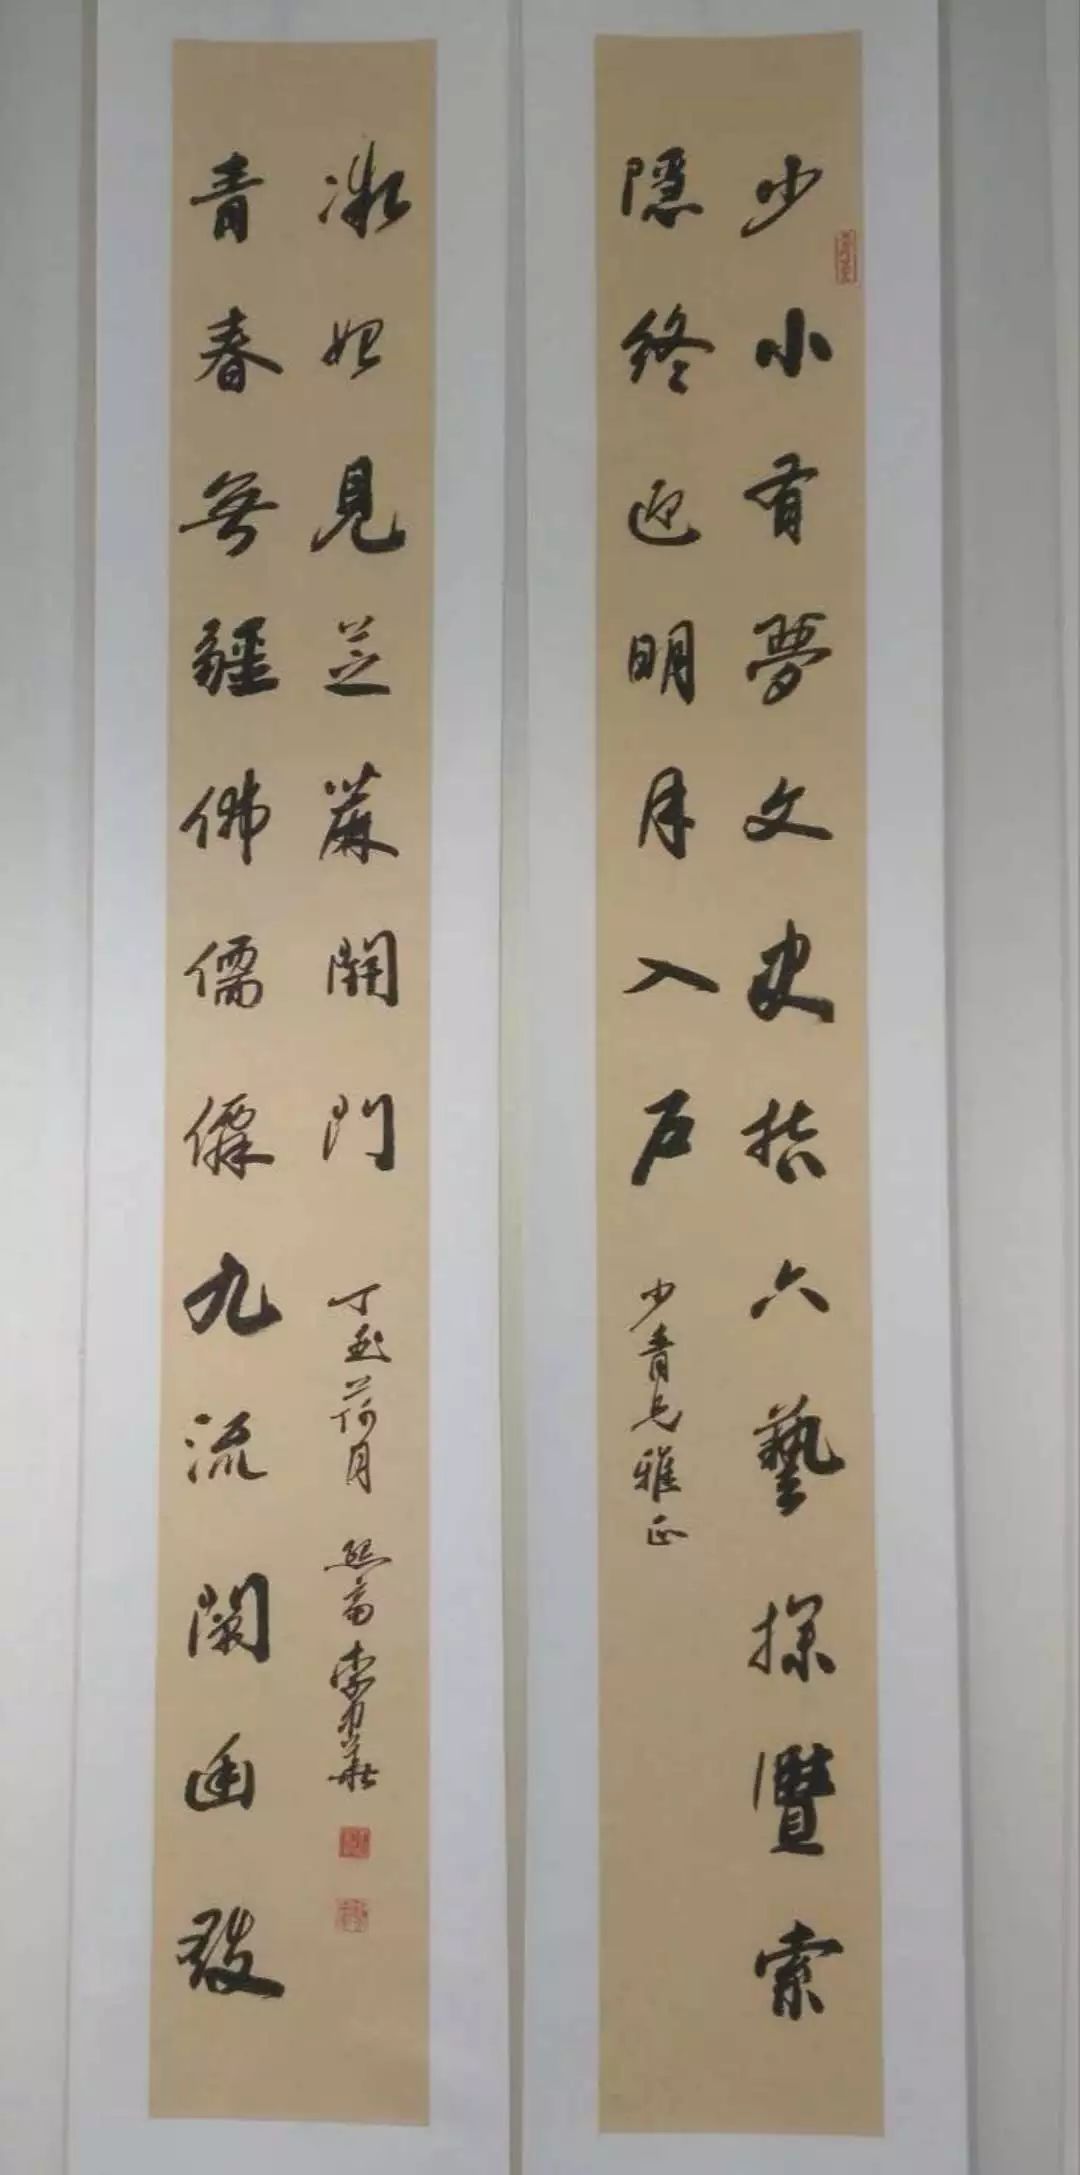 少小有夢文史哲六藝探賾索
隱終迎明月入戶
少青兄雅正
青春無疆佛儒僊九流闡幽發
微始見芝蔴開門
丁酉荷月 李力華